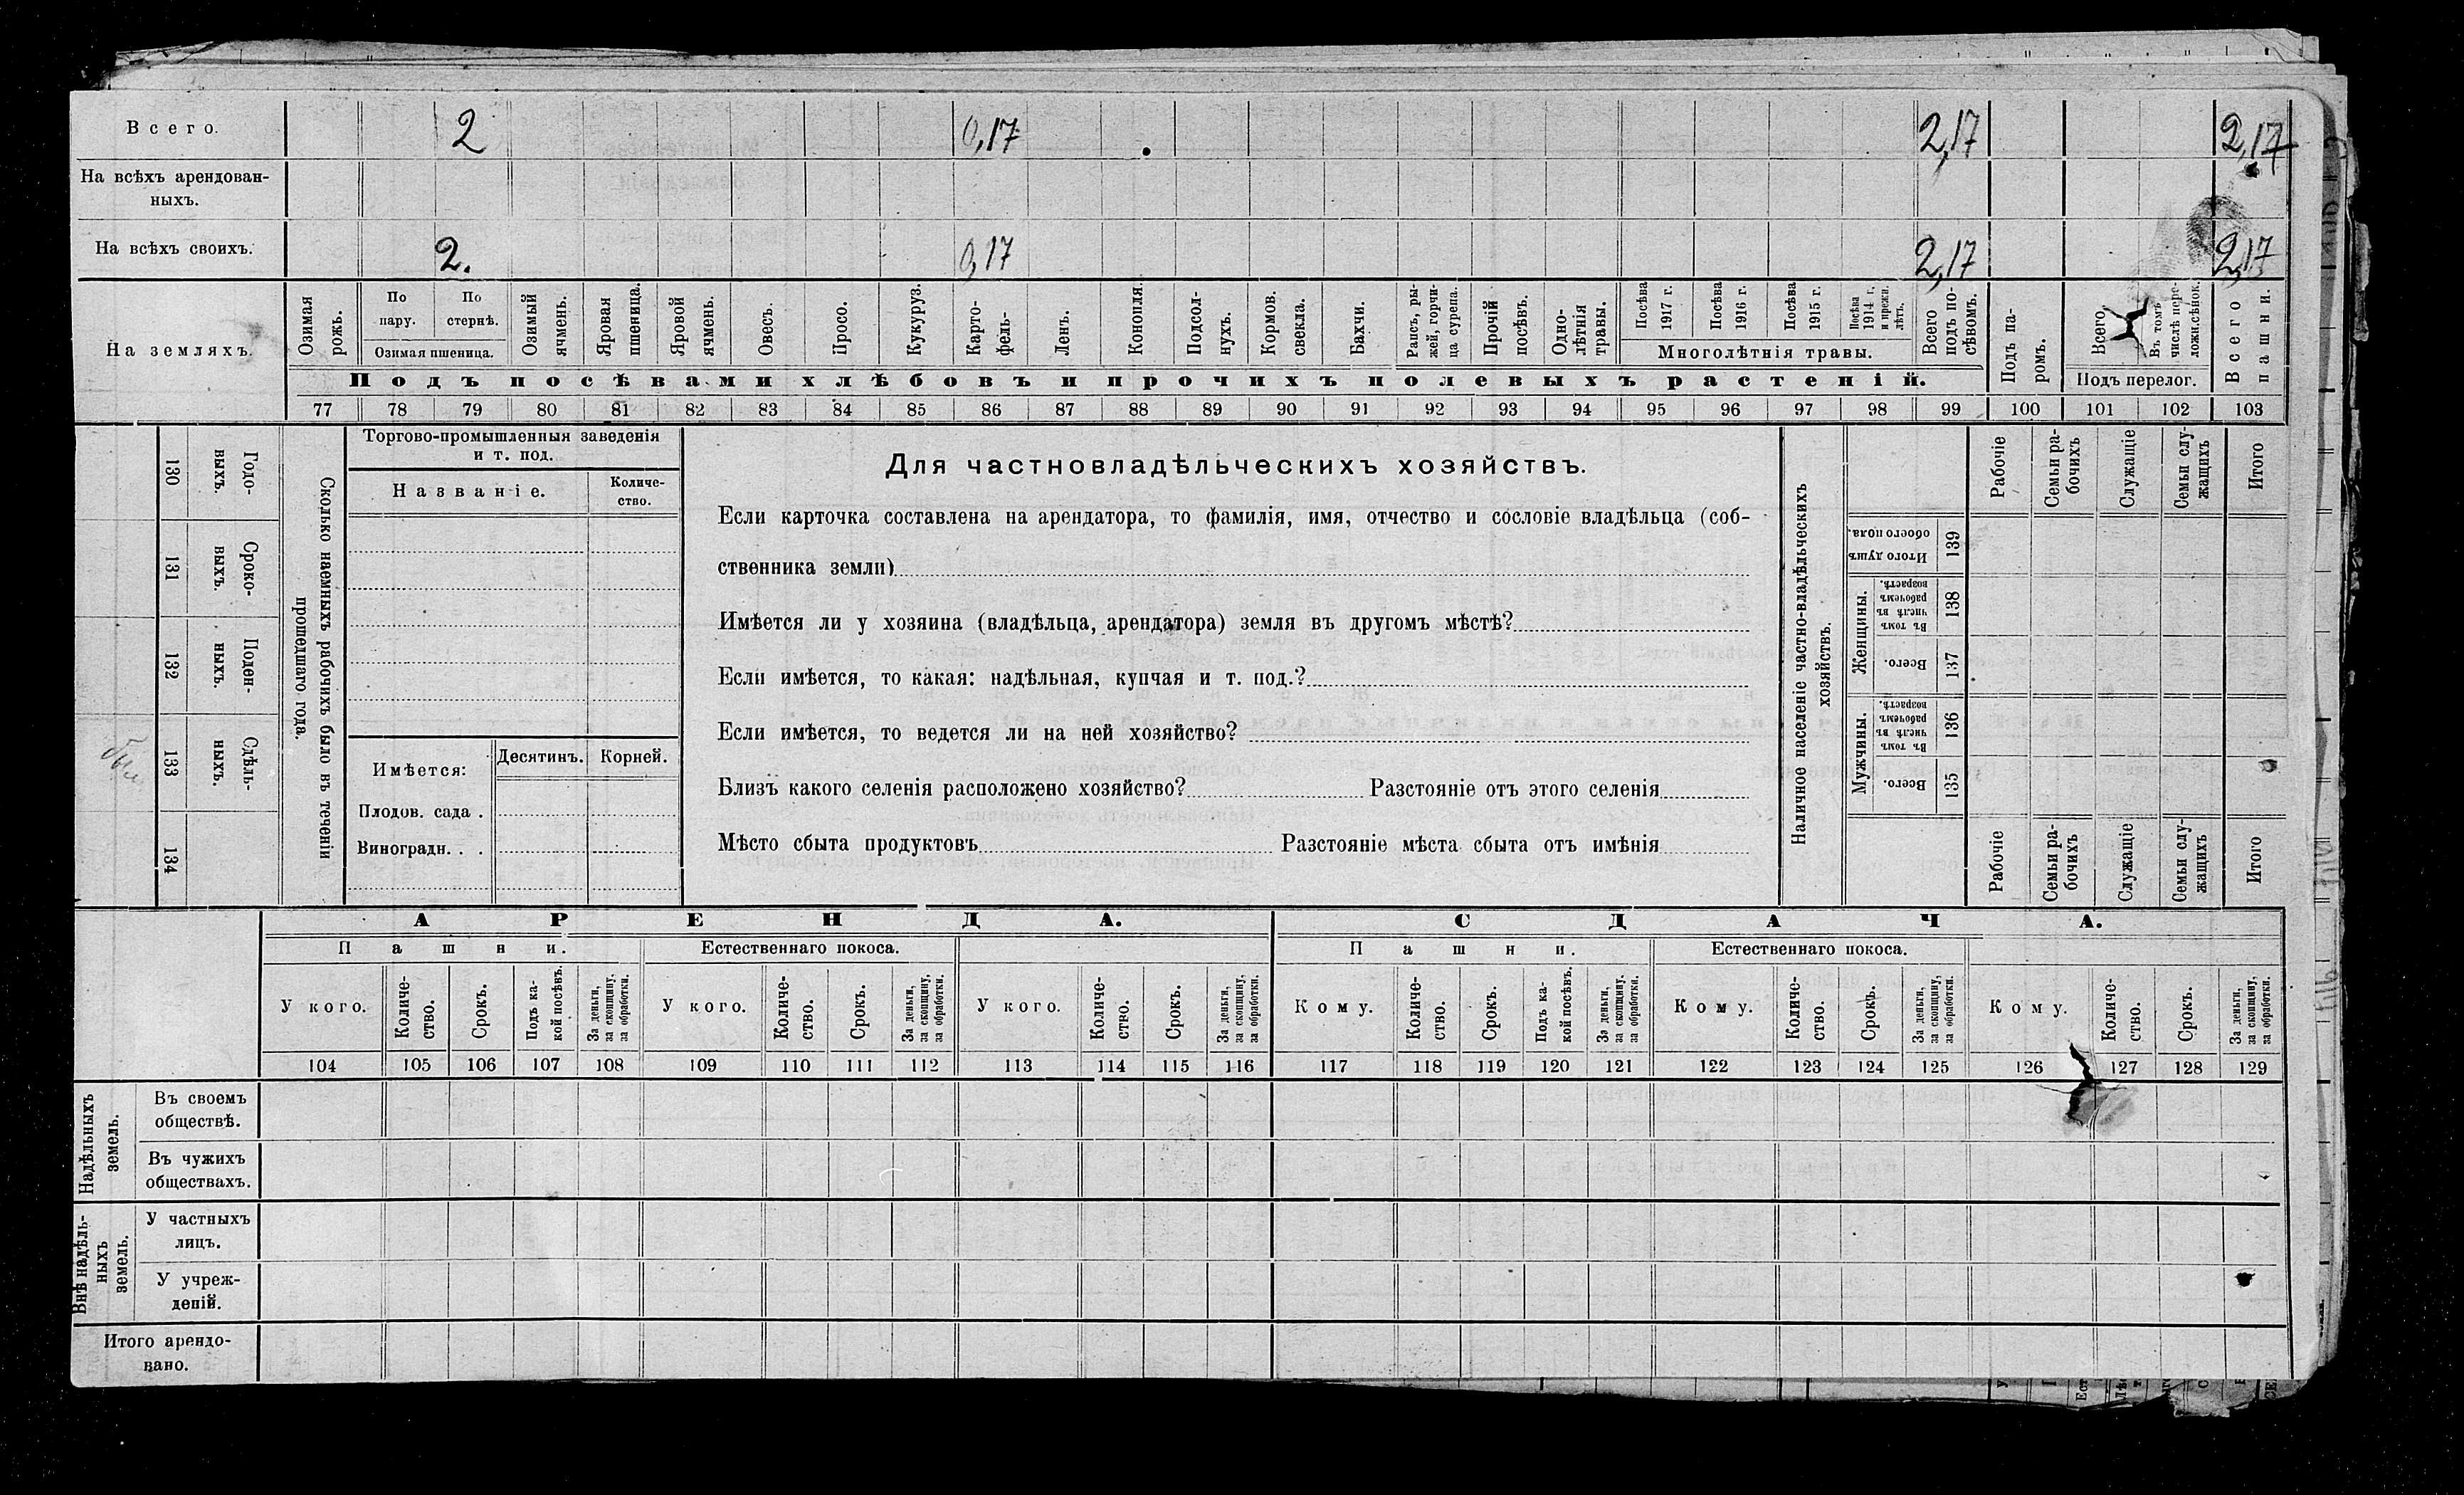 Всего. 2 0,17 2,17 2,17
На всѣхъ арендован-
ныхъ.
На всѣхъ своихъ. 2. 0,17 2,17 2,17
На земляхъ.
Озимая
рожь.
По
пару.
По
стернѣ.
Озимая пшеница.
Озимый
ячмень.
Яровая
пшеница.
Яровой
ячмень.
Овесъ.
Просо.
Кукуруз.
Карто-
фель-
Ленъ.
Конопля.
Подсол-
нухъ.
Кормов.
свекла.
Бахчи.
Рапсъ, ры-
жей, горчи-
ца сурепа.
Прочій
посѣвъ.
Одно-
лѣтнія
травы.
Посѣва
1917 г.
Посѣва
1916 г.
Посѣва
1915 г.
Посѣва
1914 г.
и прежн.
лѣтъ.
Многолѣтнія травы.
Всего
подъ по-
сѣвомъ.
Подъ па-
ромъ.
Всего
Въ томъ
числѣ пере-
ложн.сѣнок.
Подъ перелог.
Всего
пашни.
Подъ посѣвами хлѣбовъ и прочихъ полевыхъ растеній.
77 78 79 80 81 82 83 84 85 86 87 88 89 90 91 92 93 94 95 96 97 98 99 100 101 102 103
Годо-
выхъ.
130
Сроко-
выхъ.
131
Поден-
ныхъ.
132
Сдѣль-
ныхъ.
133
134
Сколько наемныхъ рабочихъ было въ теченіи
прошедшаго года.
Торгово-промышленныя заведенія
и т. под.
Названіе.
Количе-
ство.
Имѣется:
Десятинъ. Корней.
Плодов. сада .
Виноградн. . .
Для частновладѣльческихъ хозяйствъ.
Если карточка составлена на арендатора, то фамилія, имя, отчество и сословіе владѣльца (соб-
ственника земли)
Имѣется ли у хозяина (владѣльца, арендатора) земля въ другомъ мѣстѣ?
Если имѣется, то какая: надѣльная, купчая и т. под.?
Если имѣется, то ведется ли на ней хозяйство?
Близъ какого селенія расположено хозяйство? Разстояніе отъ этого селенія
Мѣсто сбыта продуктовъ Разстояніе мѣста сбыта отъ имѣнія
Наличное населеніе частно-владѣльческихъ
хозяйствъ.
Рабочіе
Семьи ра-
бочихъ
Служащіе
Семьи слу-
жащихъ
Итого
Итого душъ
обоего пола.
139
Женщины.
Въ томъ
числѣ въ
рабочемъ
возрастѣ.
138
Всего.
137
Мужчины.
Въ томъ
числѣ въ
рабочемъ
возрастѣ.
136
Всего.
135
Рабочіе
Семьи ра-
бочихъ
Служащіе
Семьи слу-
жащихъ
Итого
АРЕНДА. СДАЧА.
Пашни. Естественнаго покоса. Пашни. Естественнаго покоса.
У кого.
Количе-
ство.
Срокъ.
Подъ ка-
кой посѣвъ.
За деньги,
за скопщину,
за обработки.
У кого.
Количе-
ство.
Срокъ.
За деньги,
за скопщину,
за обработки.
У кого.
Количе-
ство.
Срокъ.
За деньги,
за скопщину,
за обработки.
Кому.
Количе-
ство.
Срокъ.
Подъ ка-
кой посѣвъ.
За деньги,
за скопщину,
за обработки.
Кому.
Количе-
ство.
Срокъ.
За деньги,
за скопщину,
за обработки.
Кому.
Количе-
ство.
Срокъ.
За деньги,
за скопщину,
за обработки.
104 105 106 107 108 109 110 111 112 113 114 115 116 117 118 119 120 121 122 123 124 125 126 127 128 129
Надѣльныхъ
земель.
Въ своемъ
обществѣ.
Въ чужихъ
обществахъ.
Внѣ надѣль-
ныхъ
земель.
У частныхъ
лицъ.
У учреж-
деній.
Итого арендо-
вано.